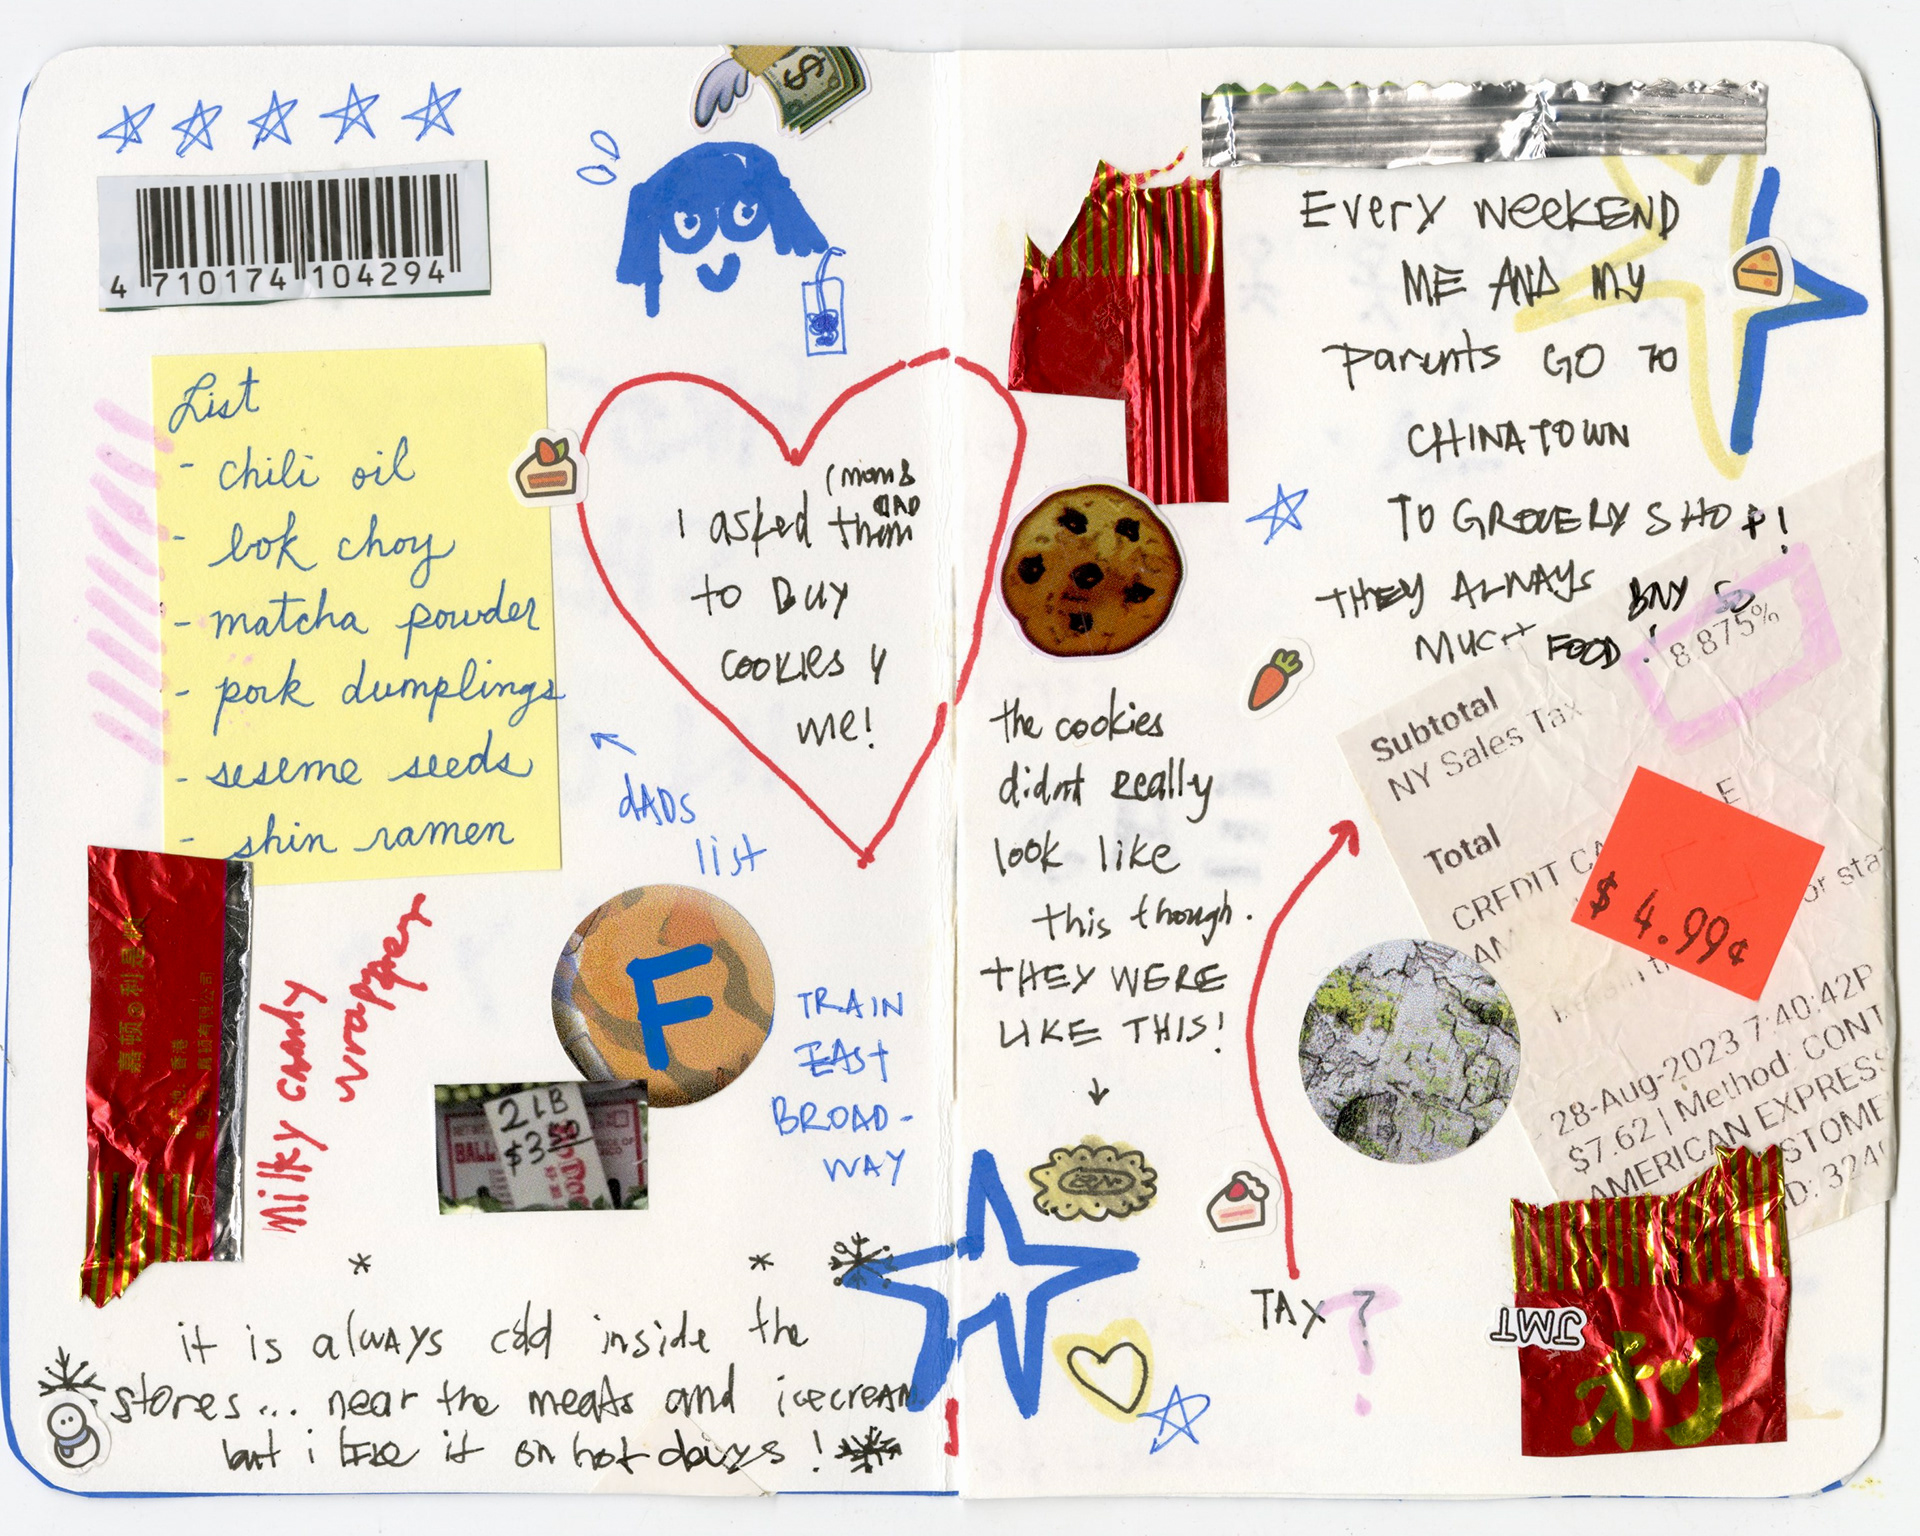 4 710174 104294
List
- chili oil
- bok choy
- matcha powder
- pork dumplings
- seseme seeds
- shin ramen
dADs
list
I asked them
(mom &
dAD
to Buy
cookies 4
me!
嘉顿®利是糖
香港
Milky candy
wrapper
F
TRAIN
EAST
BROAD-
WAY
2 LB
$3.50
BALL
it is always cold inside the
stores... near the meats and icecream
but i like it on hot days!
Every weekEND
ME AND MY
parents GO TO
CHINATOWN
TO GROCERY SHOP!
THEY ALWAYS BUY SO
MUCH FOOD!
the cookies
didnt really
look like
this though.
THEY WERE
LIKE THIS!
TAX?
8.875%
Subtotal
NY Sales Tax
Total
CREDIT CA
AM
$ 4.99¢
28-Aug-2023 7:40:42P
$7.62 | Method: CONT
AMERICAN EXPRESS
STOME
D: 324
JMT
利